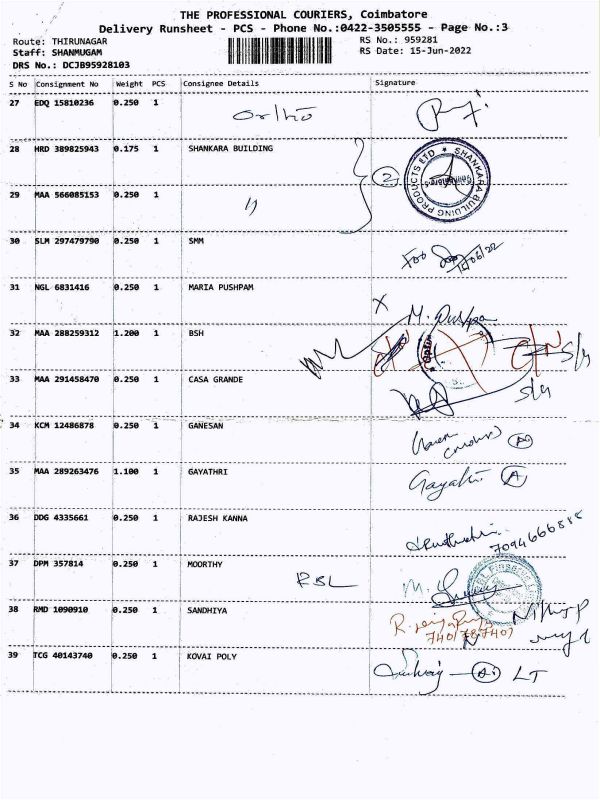 THE PROFESSIONAL COURIERS, Coimbatore
Delivery Runsheet - PCS - Phone No.:0422-3505555 - Page No.:3
Route: THIRUNAGAR
Staff: SHANMUGAM
DRS No.: DCJB95928103
RS No.: 959281
RS Date: 15-Jun-2022
S No Consignment No Weight PCS Consignee Details Signature
27 EDQ 15810236 0.250 1 Ortho
28 HRD 389825943 0.175 1 SHANKARA BUILDING
2
SHANKARA BUILDING PRODUCTS LTD
29 MAA 566085153 0.250 1 "
30 SLM 297479790 0.250 1 SMM
15/06/22
31 NGL 6831416 0.250 1 MARIA PUSHPAM
X M. Pushpa
32 MAA 288259312 1.200 1 BSH
33 MAA 291458470 0.250 1 CASA GRANDE
34 KCM 12486878 0.250 1 GANESAN
35 MAA 289263476 1.100 1 GAYATHRI Gayathri A
36 DDG 4335661 0.250 1 RAJESH KANNA
37 DPM 357814 0.250 1 MOORTHY RBL
38 RMD 1090910 0.250 1 SANDHIYA
39 TCG 40143740 0.250 1 KOVAI POLY LT